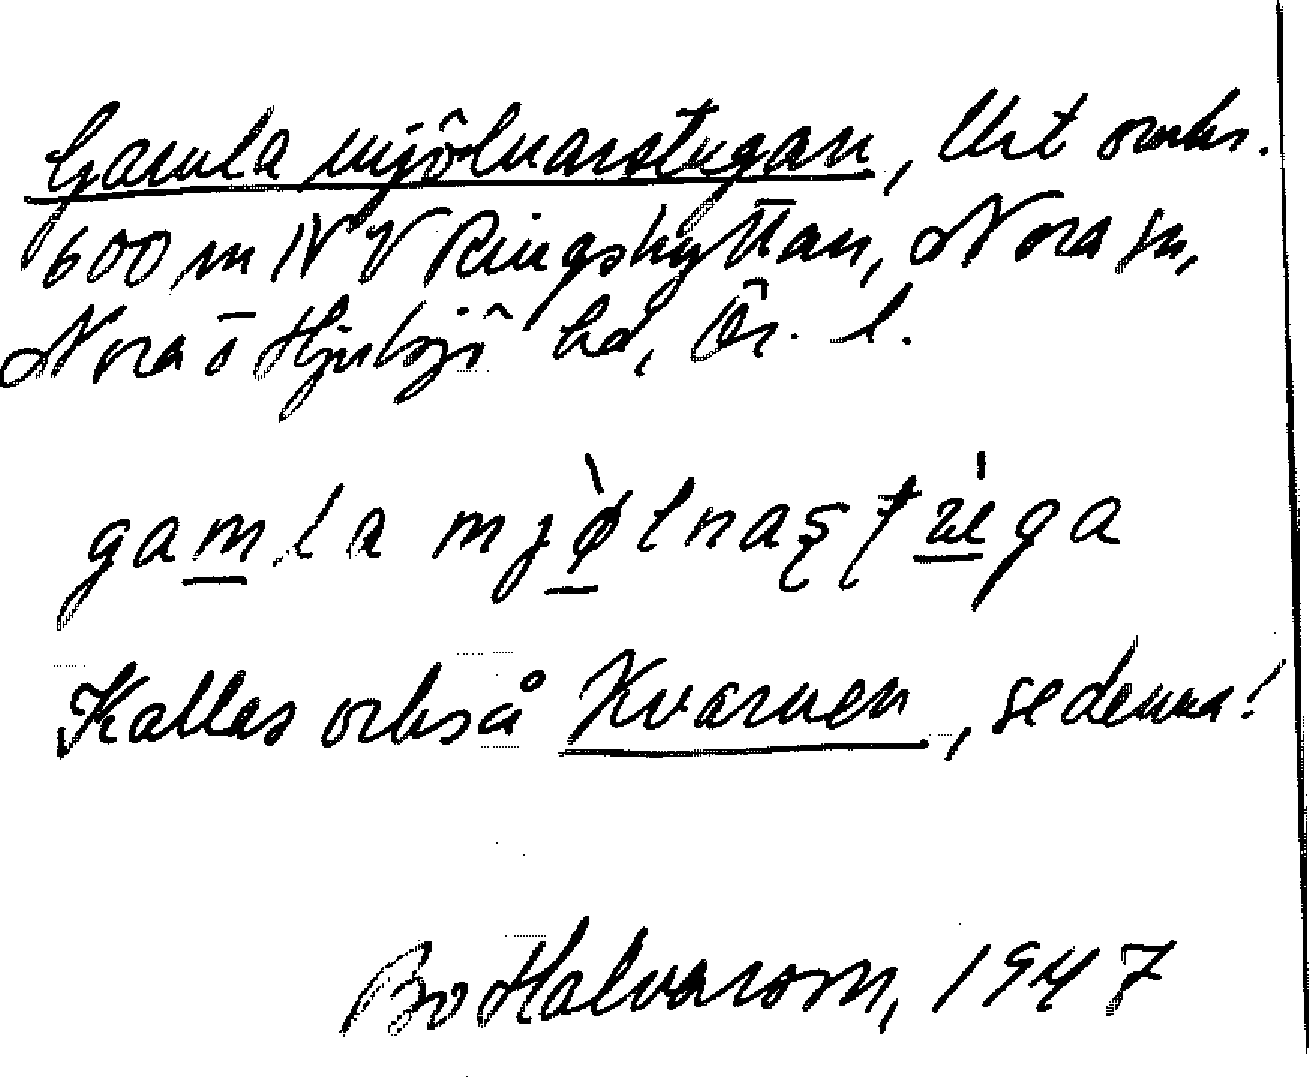 Gamla mjölnarstugan, Urt omks.
600 m NV Ringshyttan, Nora sn,
Nora o Hjulsjö hd, Ör. l.
gamla mjølnaʂʈuga
Kallas också Kvarnen, se denna!
Bo Halvarson, 1947